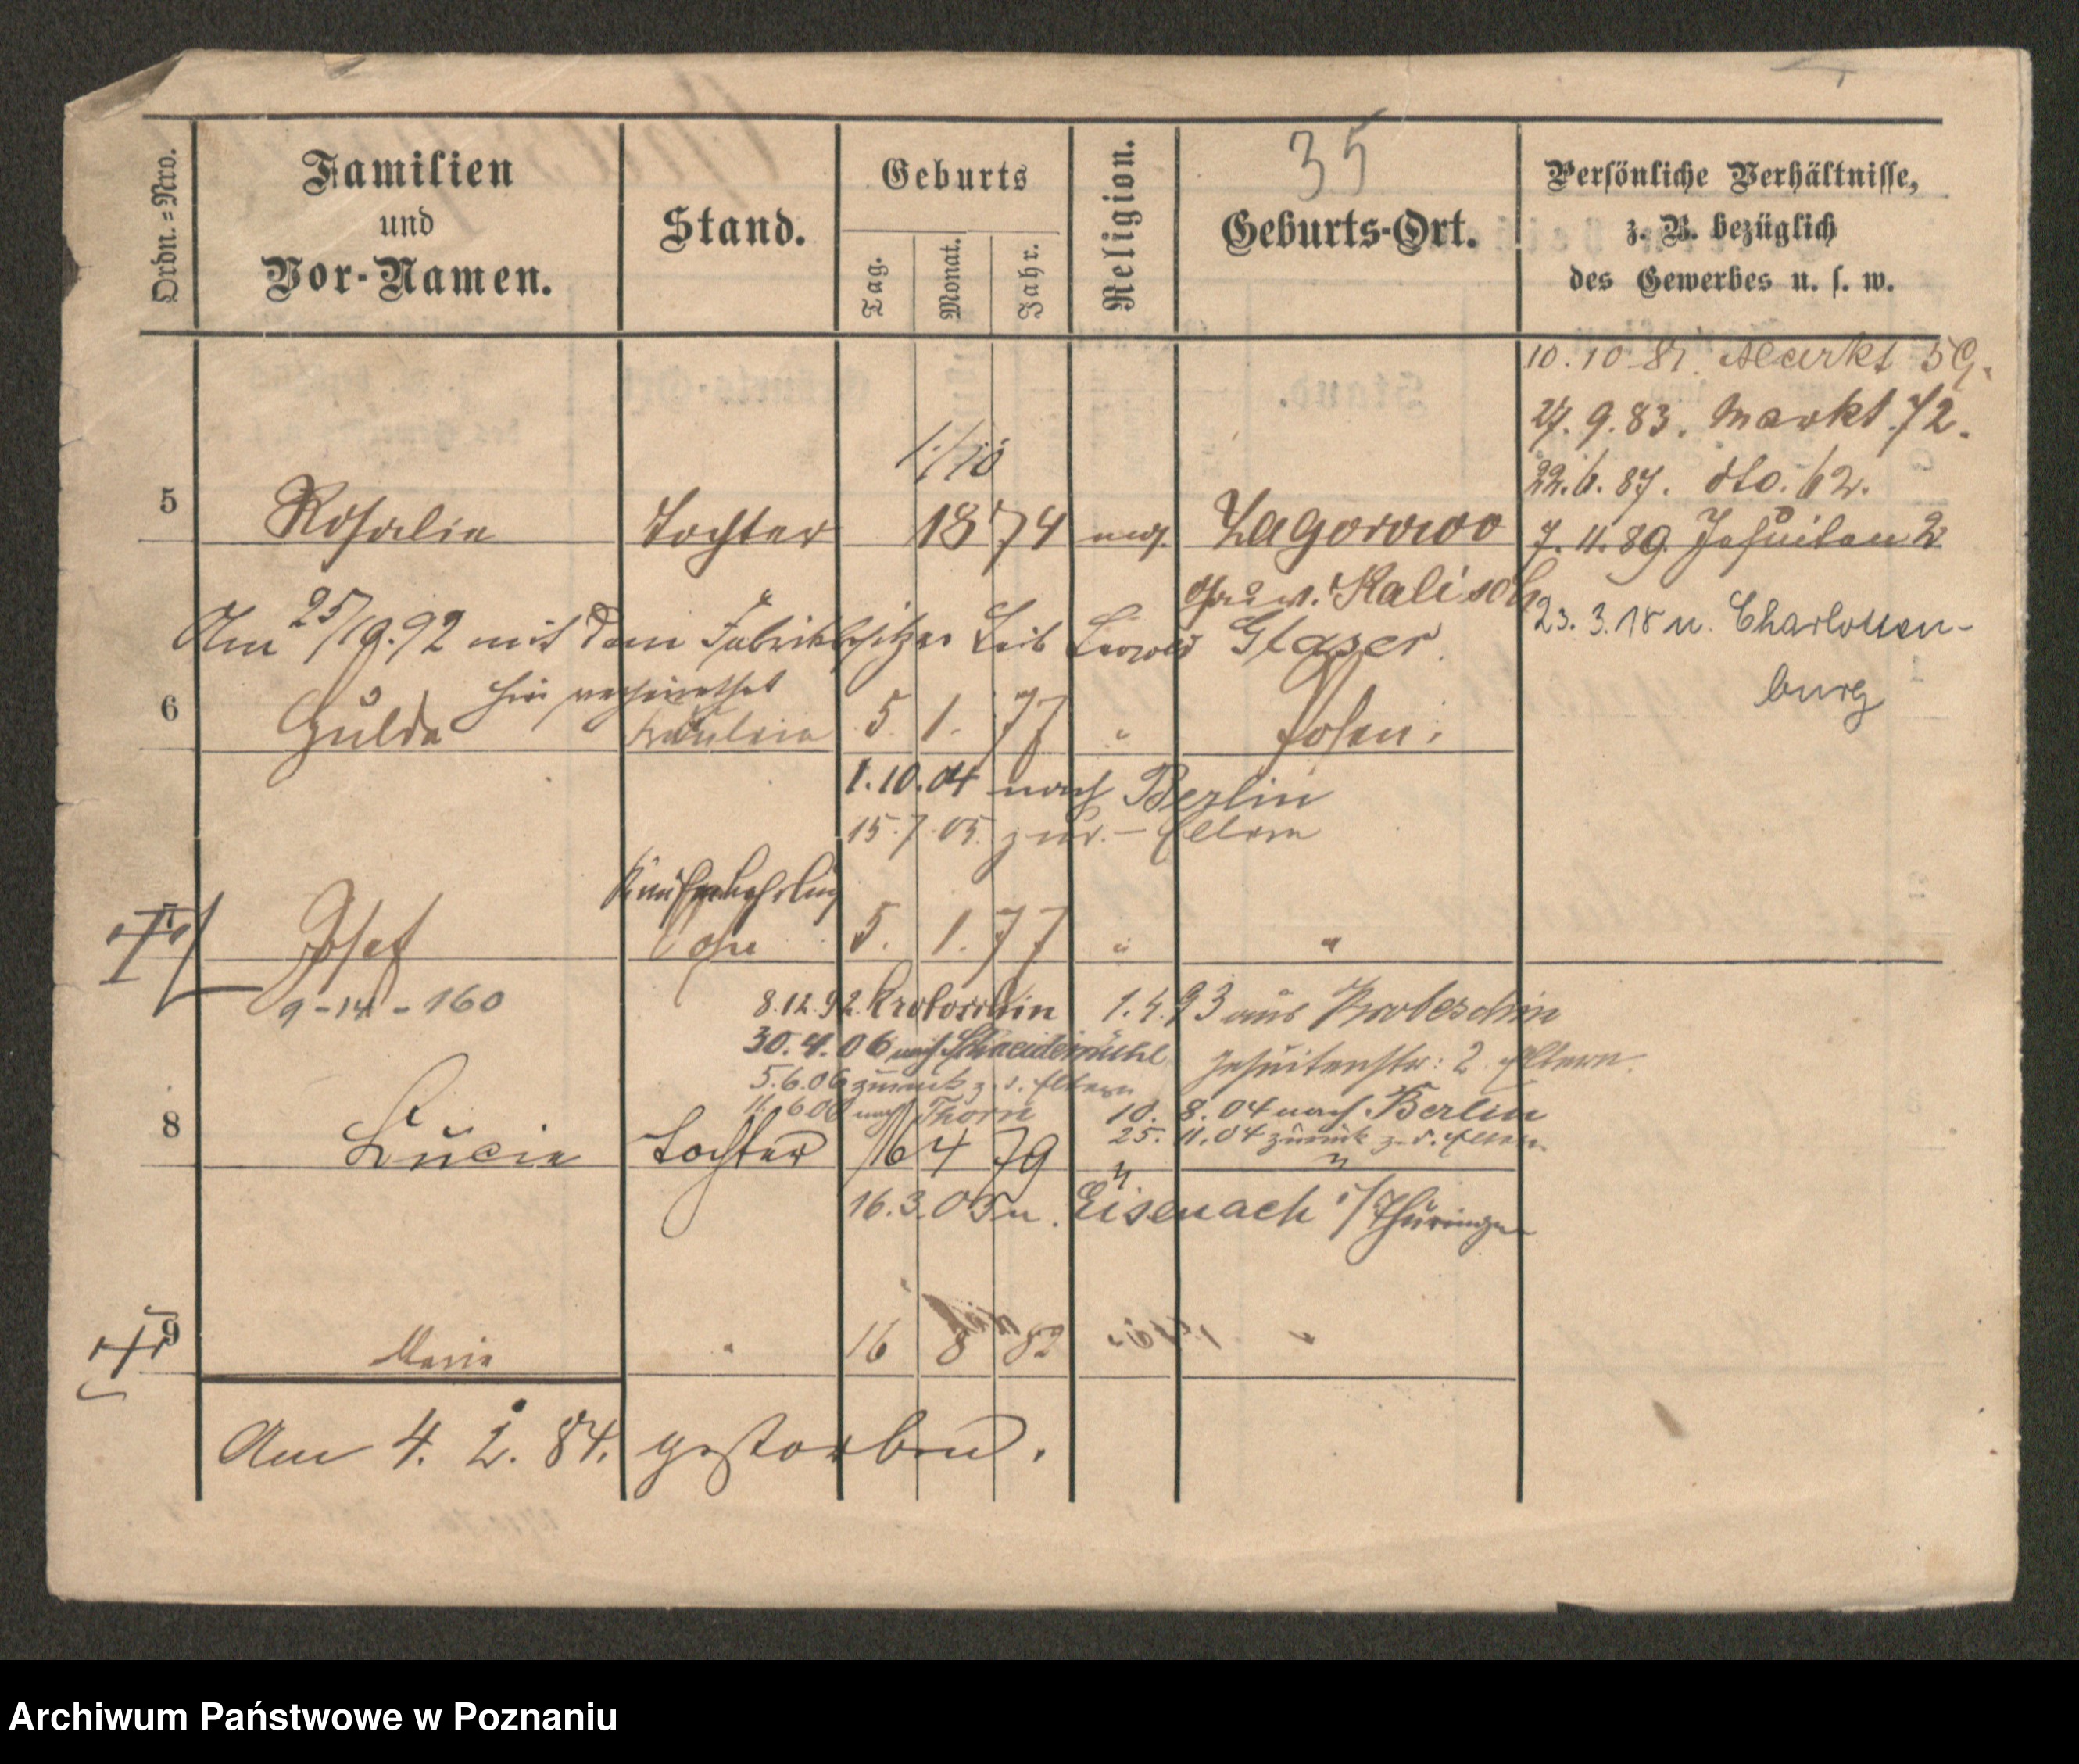 35
Ordn.=Nro.
Familien
und
Vor-Namen.
Stand.
Geburts
Tag.
Monat.
Jahr.
Religion.
Geburts-Ort.
Persönliche Verhältnisse,
z. B. bezüglich
des Gewerbes u. s. w.
10. 10 81. Markt 59.
27. 9. 83. Markt 72.
22. 6. 87. dto. 62.
7. 11. 89. Jesuiten 2
23. 3. 18 n. Charlotten-
burg
1/10
5 Rosalie Tochter 1874 Zagorowo
Kalisch
Am 25/10. 92 mit dem Fabrikbesitzer Leib Glaser
hier verheirathet
6 Hulda 5. 1. 77 " Posen.
1. 10. 04 nach Berlin
15. 7. 05. zur. - Eltern
Kaufm. Lehrling
7 Josef Sohn 5. 1. 77 " "
9-14-160
8. 12. 92. Krotoschin 1. 4. 93 aus Krotoschin
30. 4. 06 nach Schneidemühl Jesuitenstr: 2. Eltern.
5. 6. 06 zurück z. d. Eltern
11. 6 06 nach Thorn 10. 8. 04 nach Berlin
25. 11. 04 zurück z. d. Eltern
8 Lucie Tochter 16 4 79 " "
16. 3. 05 n. Eisenach i/Thüringen
9 Marie " 16 8 82 "
Am 4. 2. 84. gestorben.
Archiwum Państwowe w Poznaniu